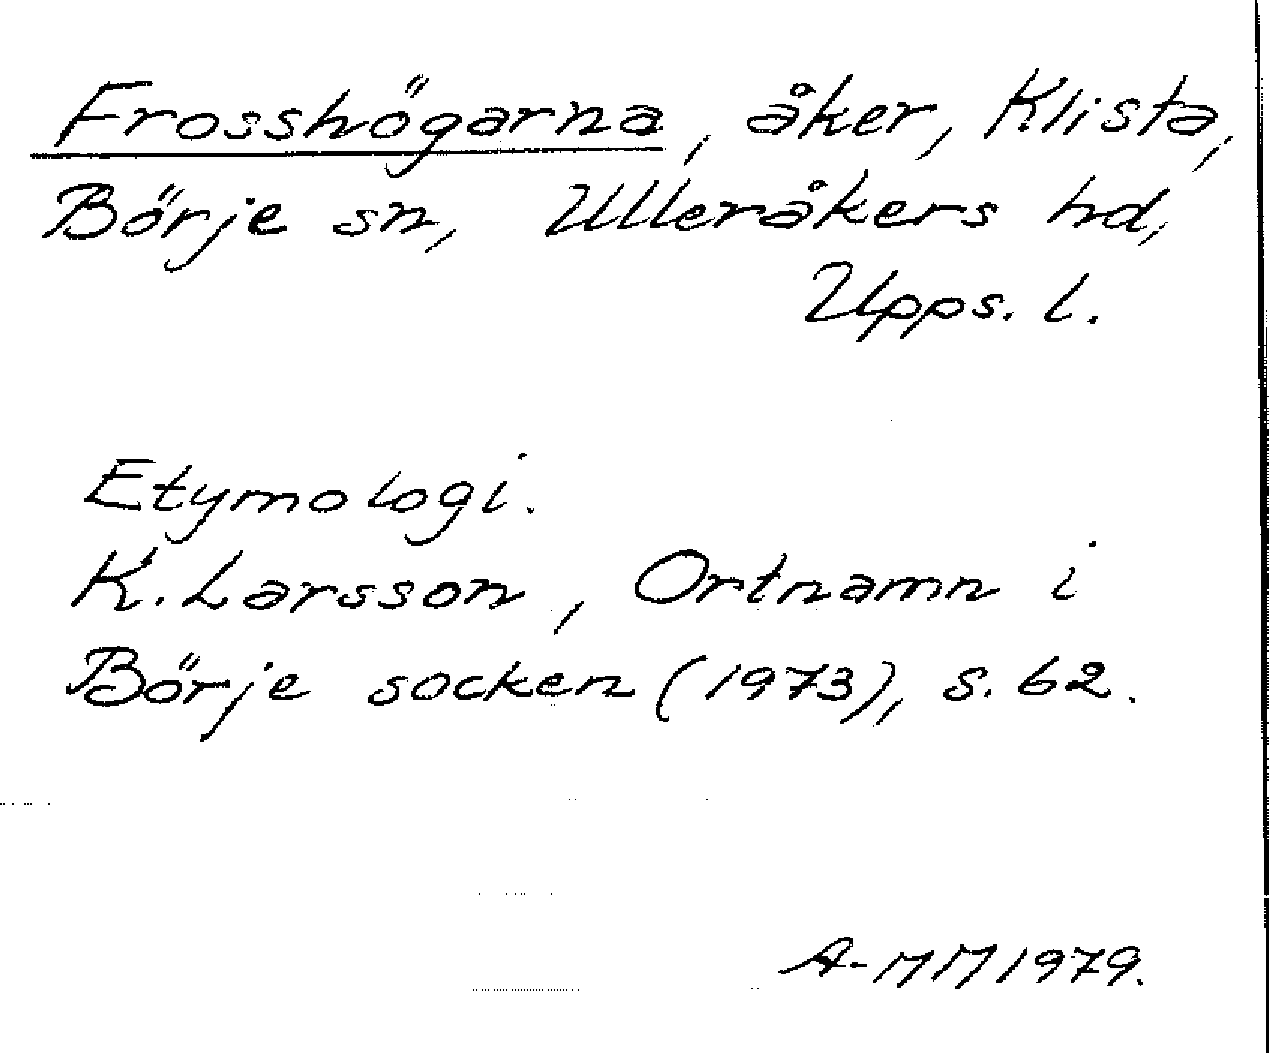 Frosshögarna, åker, Klista,
Börje sn, Ulleråkers hd,
Upps. l.
Etymologi.
K. Larsson, Ortnamn i
Börje socken (1973), s. 62.
A-MM 1979.